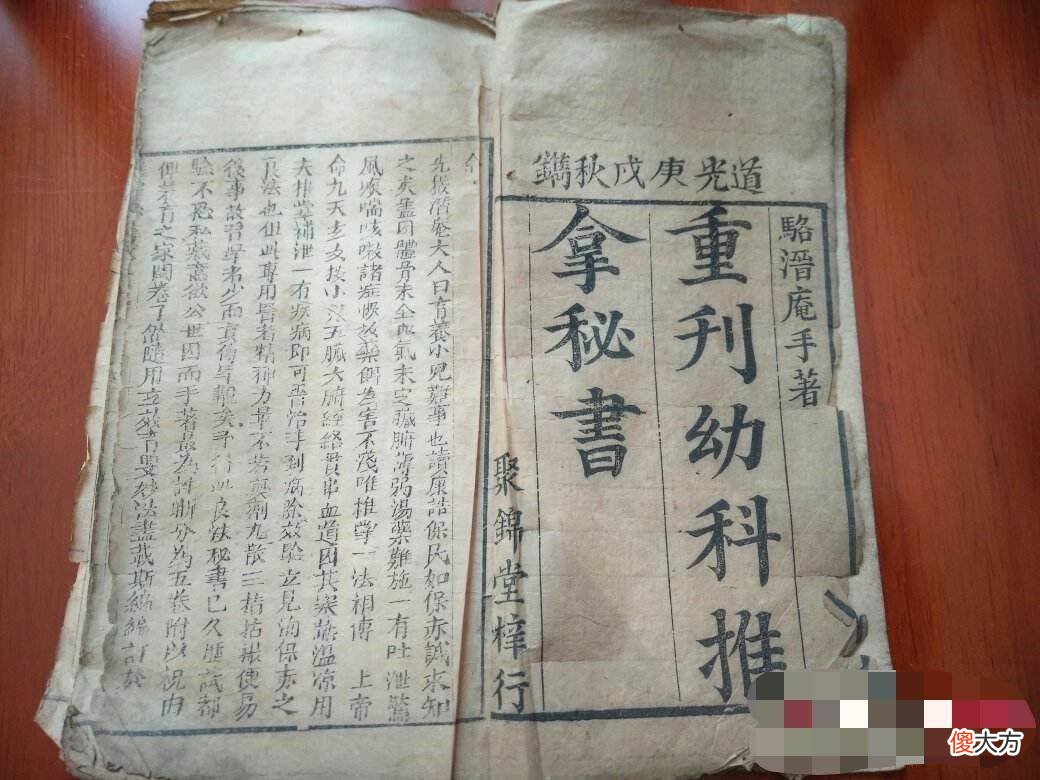 道光庚戌秋鐫
駱潛庵手著
重刊幼科推
拿秘書
聚錦堂梓行
先潛庵大人曰育養小兒難事也讀康誥保民如保赤誠求知
之矣蓋因體骨未全血氣未定臟腑薄弱湯藥難施一有吐泄驚
風痰喘咳嗽諸症悞投藥餌為害不淺唯推拏一法相傳 上帝
命九天玄女按小兒五臟六腑經絡貫串血道因其寒熱溫凉用
夫推拏補泄一有疾病即可醫治手到病除效驗立見洵保赤之
良法也但此專用醫者精神力量不若煎劑丸散三指拈撮便易
後事故習學者少而真傳罕觀矣予得此良法秘書已久歷試都
驗不忍私藏意欲公世因而手著最為詳晰分為五卷附以祝由
俾養育之家開卷了然隨用立效育嬰妙法盡載斯編編訂於
傻大方